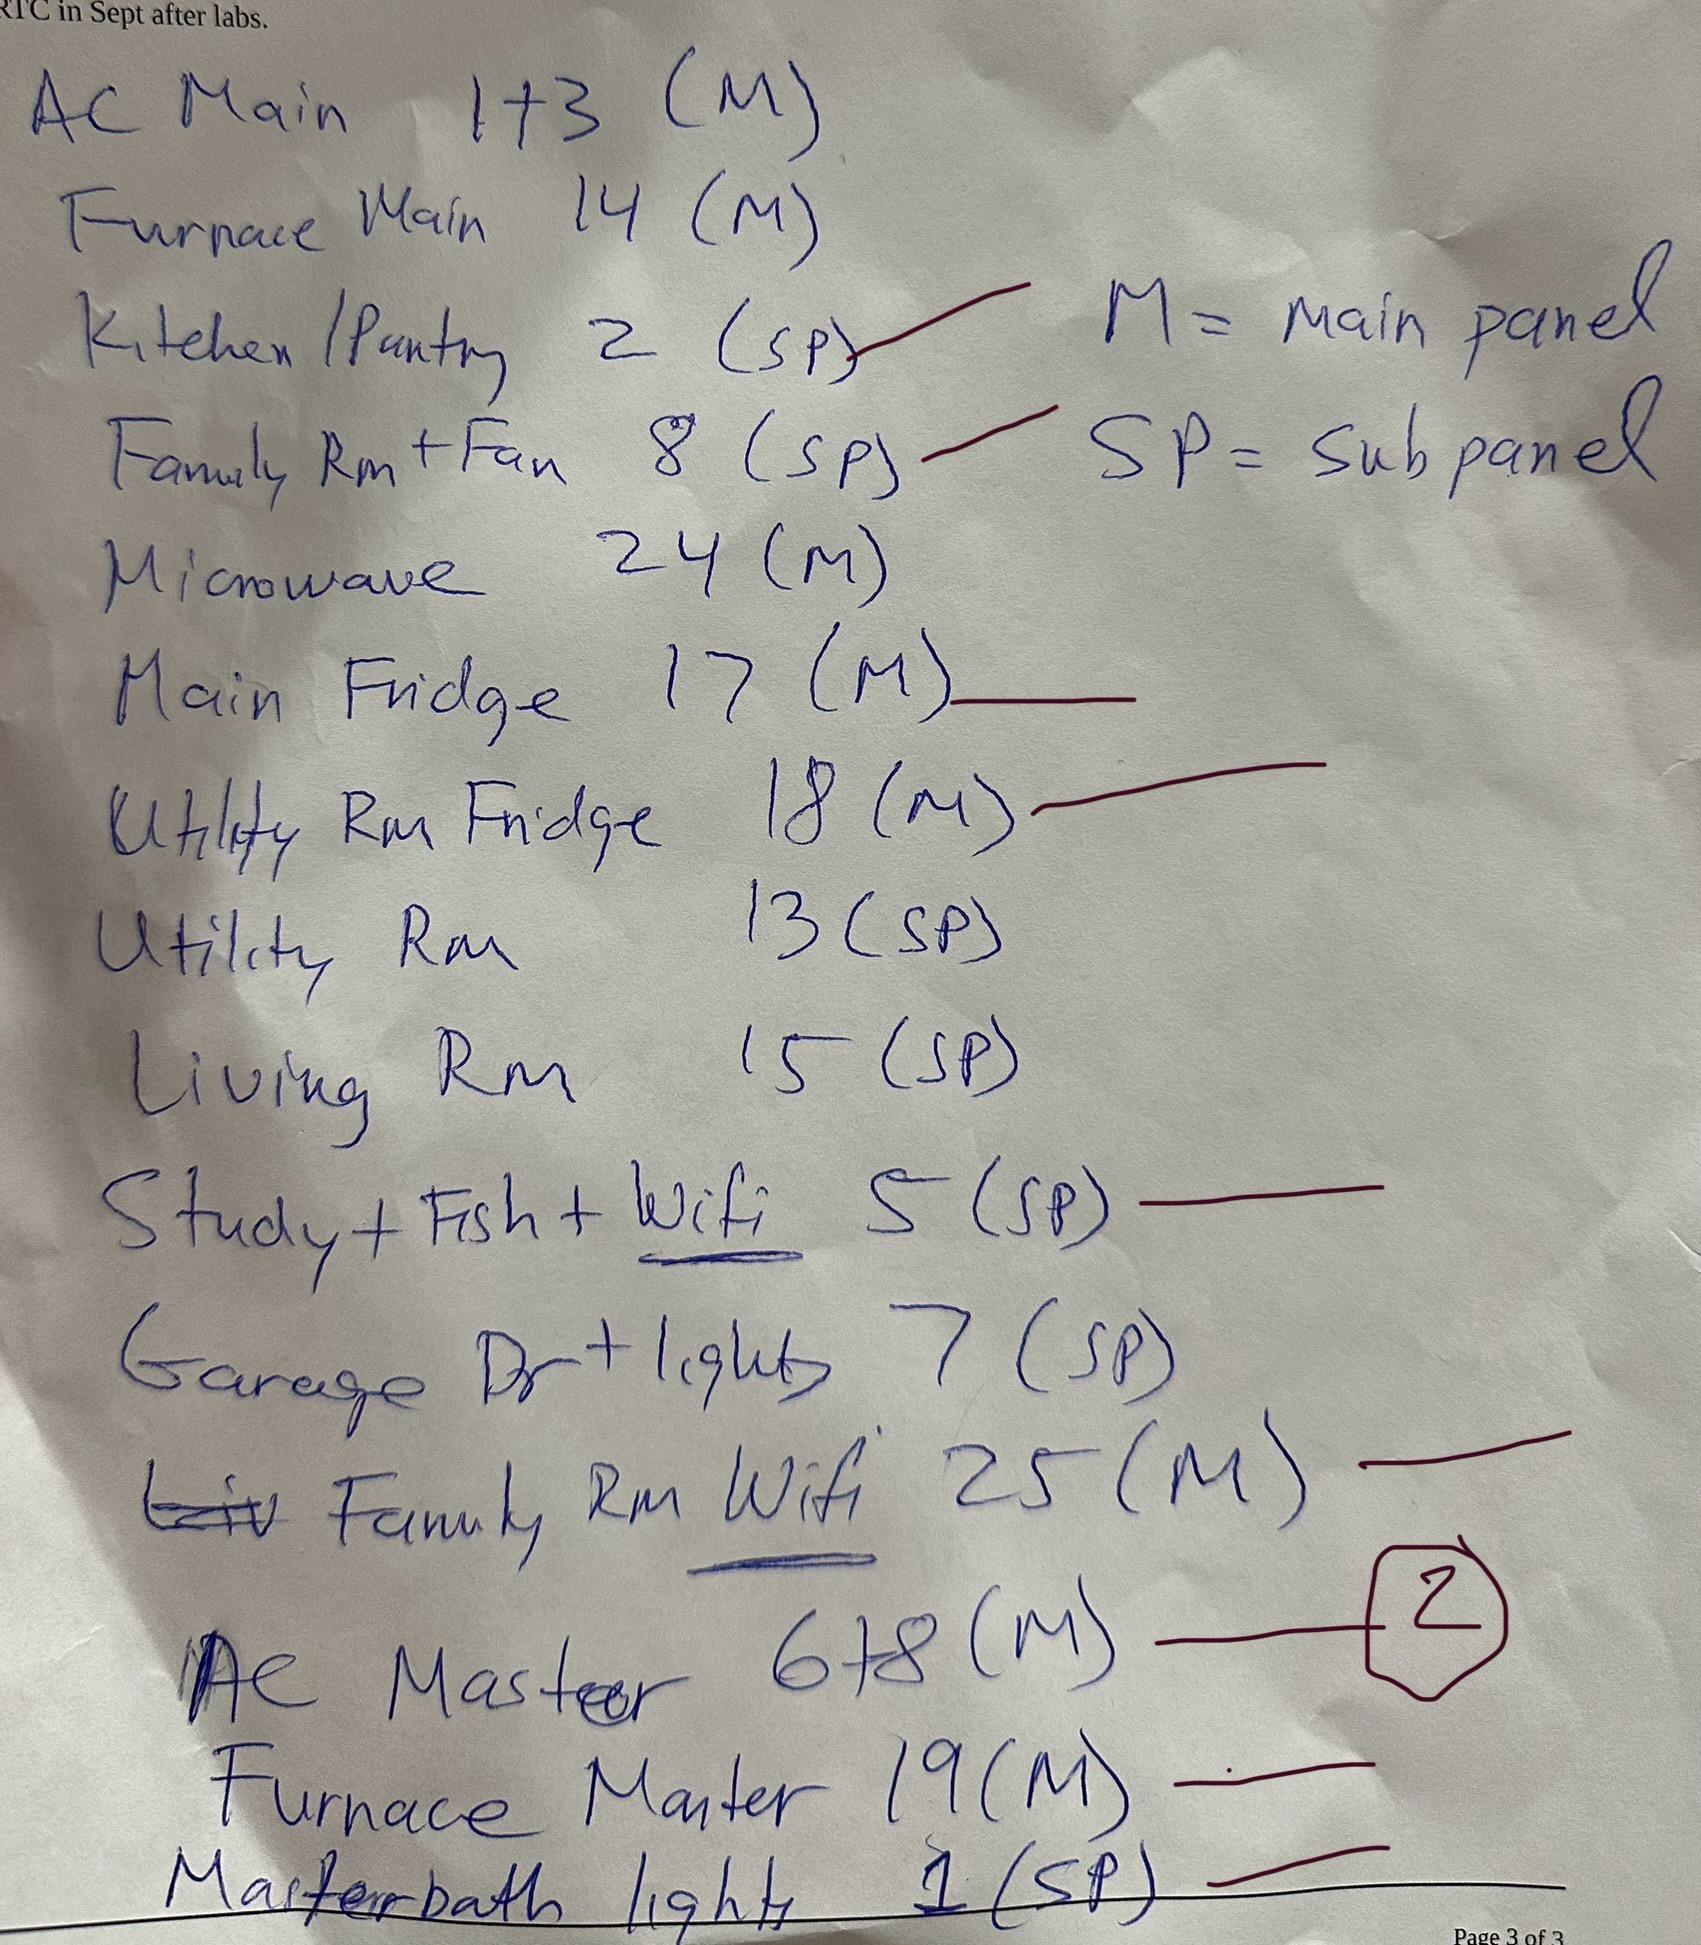 RTC in Sept after labs.
AC Main 1+3 (M)
Furnace Main 14 (M)
Kitchen/Pantry 2 (SP)
M = Main panel
Family Rm + Fan 8 (SP)
SP = Sub panel
Microwave 24 (M)
Main Fridge 17 (M)
Utility Rm Fridge 18 (M)
Utility Rm 13 (SP)
Living Rm 15 (SP)
Study + Fish + Wifi 5 (SP)
Garage Dr + lights 7 (SP)
Liv Family Rm Wifi 25 (M)
2
AC Master 6+8 (M)
Furnace Master 19 (M)
Masterbath lights 1 (SP)
Page 3 of 3